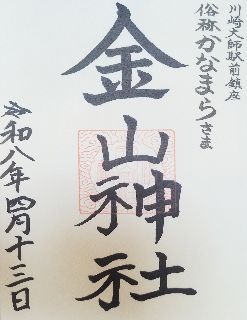 川崎大師駅前鎮座
俗称かなまらさま
金山神社
令和八年四月十三日